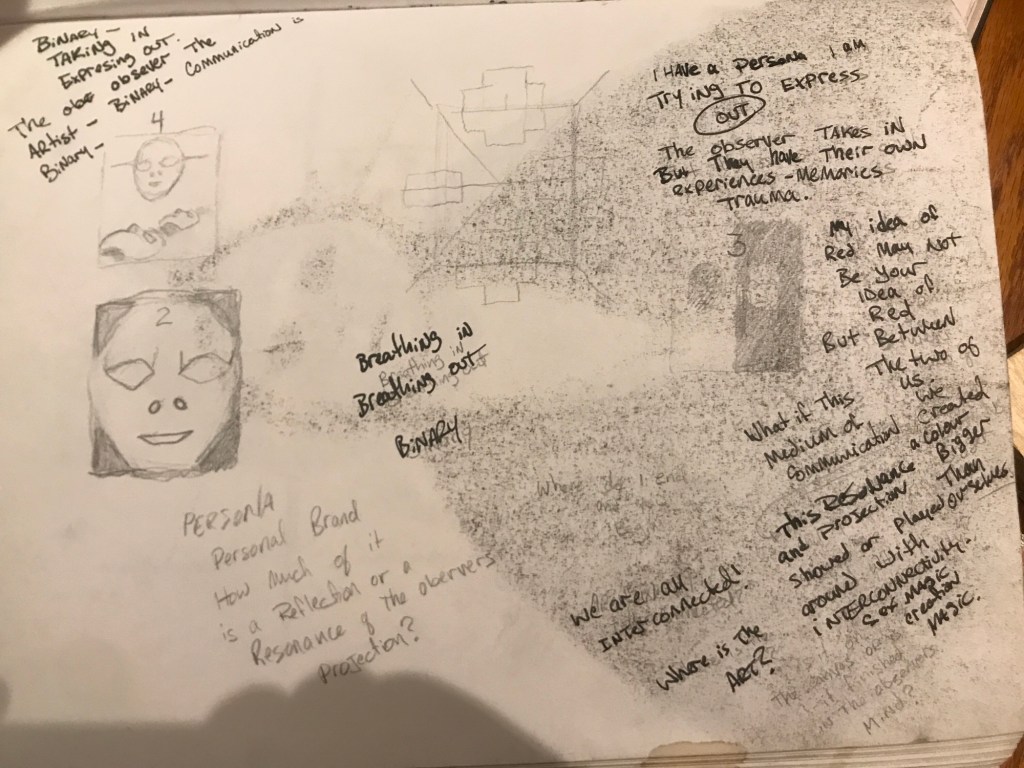 BiNARY -
TAKiNG iN
Expresing OUT.
The obser observer The
Artist - BiNARY - Communication is
Binary -
4
2
PERSONA
Personal Brand
How much of it
is a Reflection or a
Resonance of the observers
Projection?
Breathing in
Breathing in
Breathing out
BiNARY
I HAVE a persona I am
Trying To Express
OUT
The observer TAKES iN
But They have Their own
experiences - Memories
Trauma.
3
My idea of
Red May Not
Be your
idea of
Red
But Between
The two of
us we
created
a colour
Bigger
Than
ourselves
What if This
Medium of
Communication
This Resonance
and projection
showed or Played
around with
iNTERCONNECTiVITY.
& of MAGiC
creation
Magic.
Where do I End
and
We are all
INTERconnected!
Where is the
ART?
The canvas or
is it finished
in the observers
Mind?